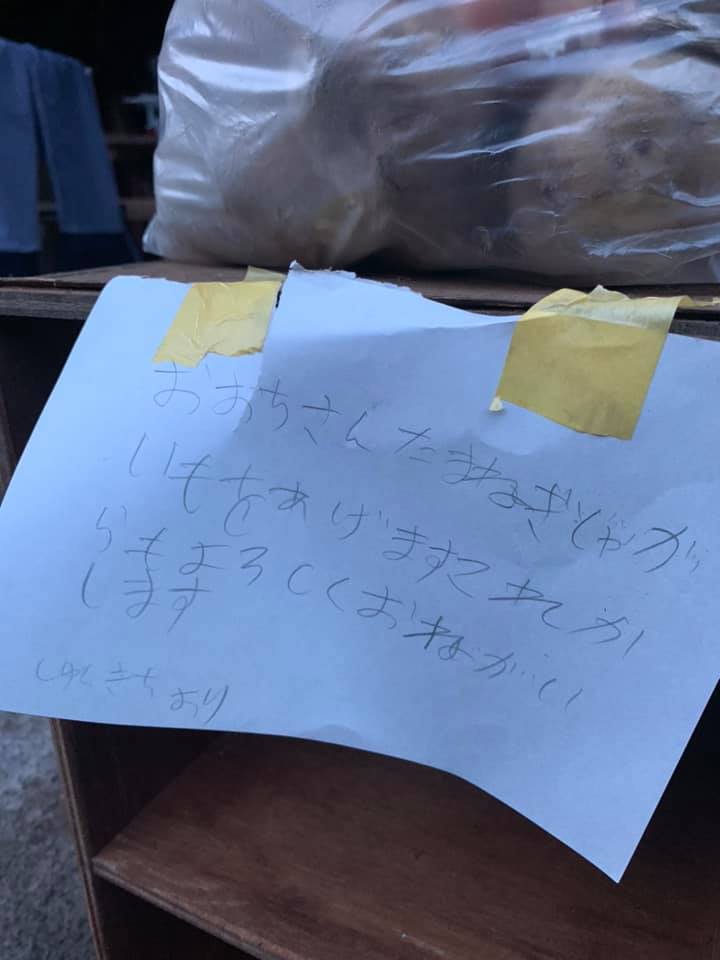 おおちさんたまねぎじゃが
いもをあげますこれか
らもよろしくおねがい
します
より